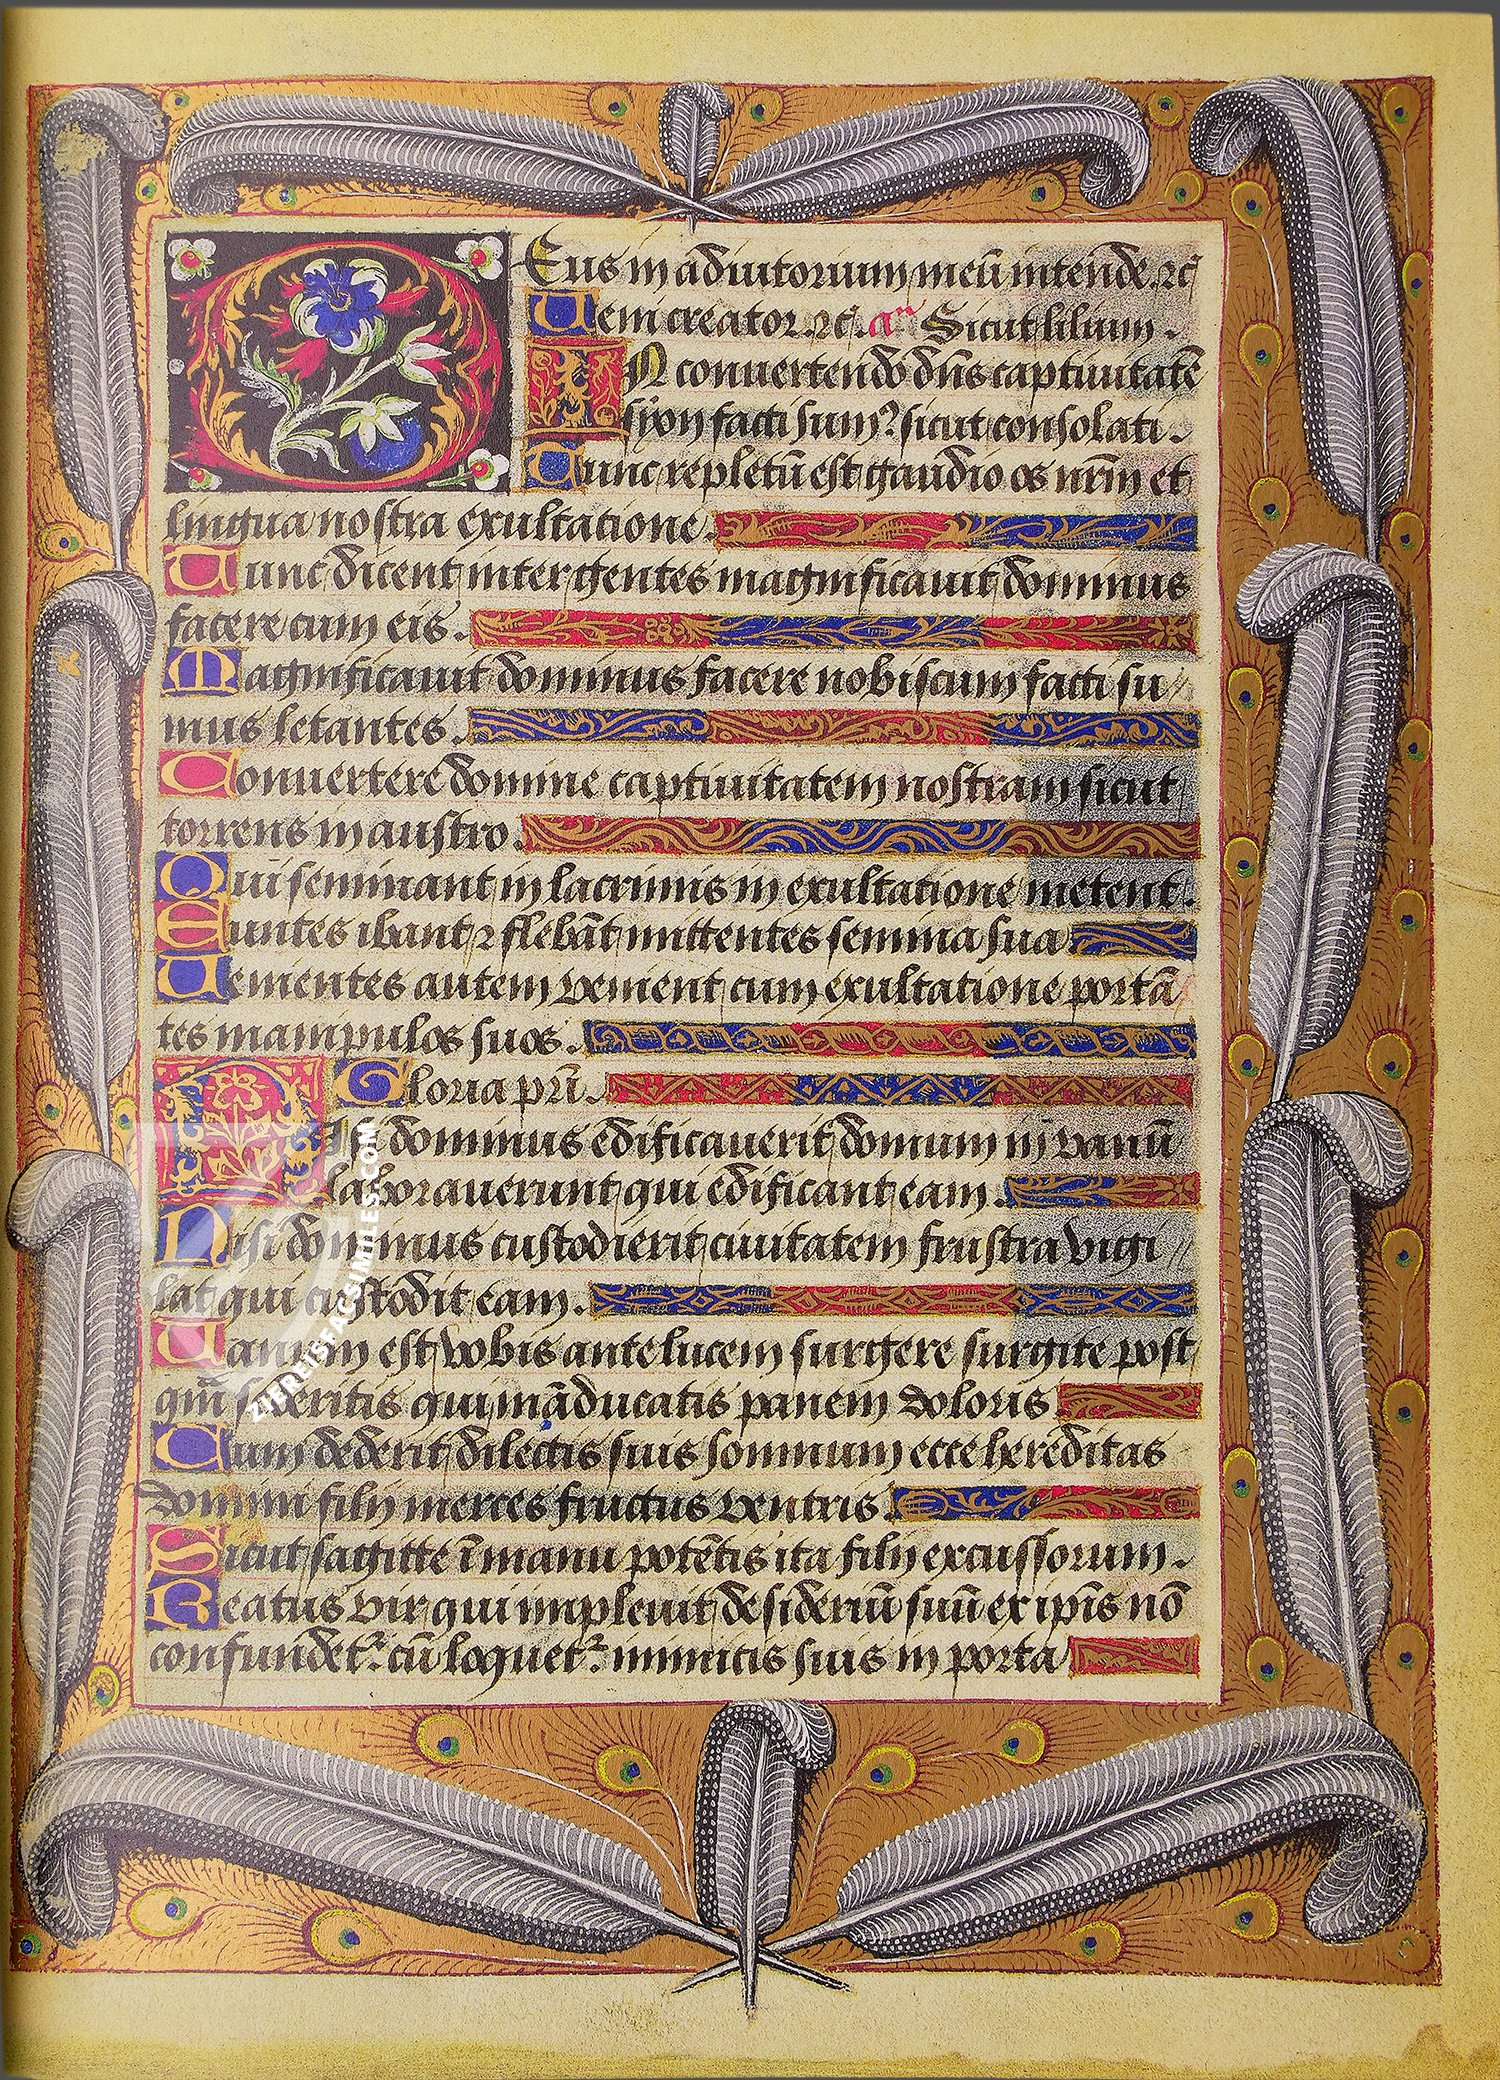 Deus in adiutorium meū intende. ⁊c̄
Ueni creator. ⁊c̄. an̄ Sicut lilium.
IN conuertendo dn̄s captiuitatē
syon facti sumꝰ sicut consolati.
Tunc repletū est gaudio os nr̄m et
lingua nostra exultatione.
Tunc dicent inter gentes magnificauit dominus
facere cum eis.
Magnificauit dominus facere nobiscum facti su
mus letantes.
Conuertere domine captiuitatem nostram sicut
torrens in austro.
Qui seminant in lacrimis in exultatione metent.
Euntes ibant ⁊ flebāt mittentes semina sua
Uenientes autem venient cum exultatione portā
tes manipulos suos.
Gloria pr̄i.
Nisi dominus edificauerit domum in vanū
laborauerunt qui edificant eam.
Nisi dominus custodierit ciuitatem frustra vigi
lat qui custodit eam.
Uanum est vobis ante lucem surgere surgite post
qm̄ sederitis qui māducatis panem doloris
Cum dederit dilectis suis somnum ecce hereditas
domini filij merces fructus ventris.
Sicut sagitte ī manu potētis ita filij excussorum.
Beatus vir qui impleuit desideriū suū ex ipīs nō
confundetᷣ cū loquetᷣ inimicis suis in porta
ZIEREISFACSIMILES.COM